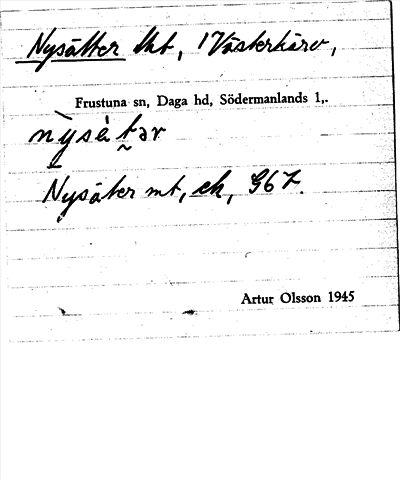 Nysätter lht, i Västerkärv,
Frustuna sn, Daga hd, Södermanlands l,.
Nysäter mt, ek, G67.
Artur Olsson 1945